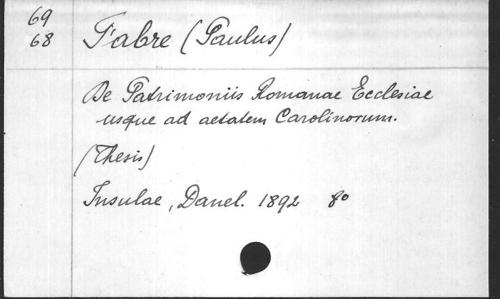 69
68 Fabre (Paulus)
De Patrimoniis Romanae Ecclesiae
usque ad aetatem Carolinorum.
(Thesis)
Insulae, Danel. 1892 8o